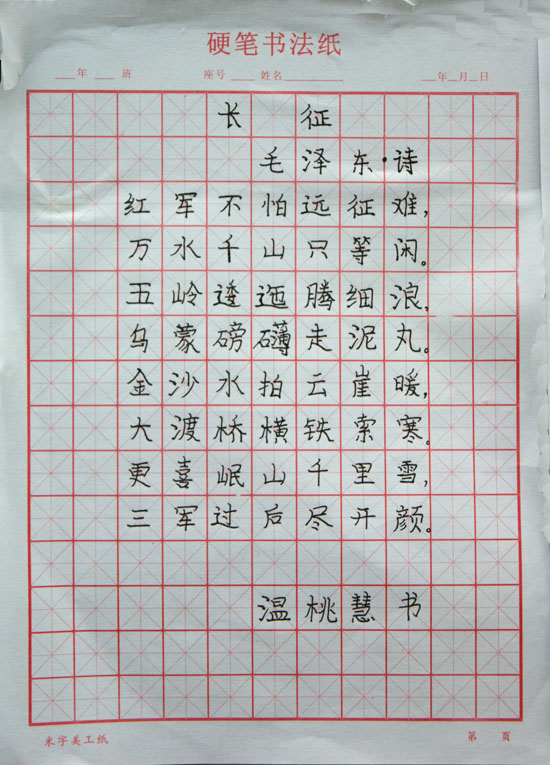 硬笔书法纸
年 班 座号 姓名 年 月 日
长 征
毛泽东·诗
红军不怕远征难,
万水千山只等闲。
五岭逶迤腾细浪,
乌蒙磅礴走泥丸。
金沙水拍云崖暖,
大渡桥横铁索寒。
更喜岷山千里雪,
三军过后尽开颜。
温桃慧书
米字美工纸 第 页